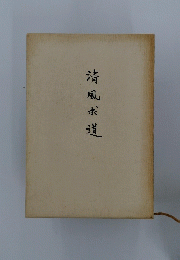 清風求道